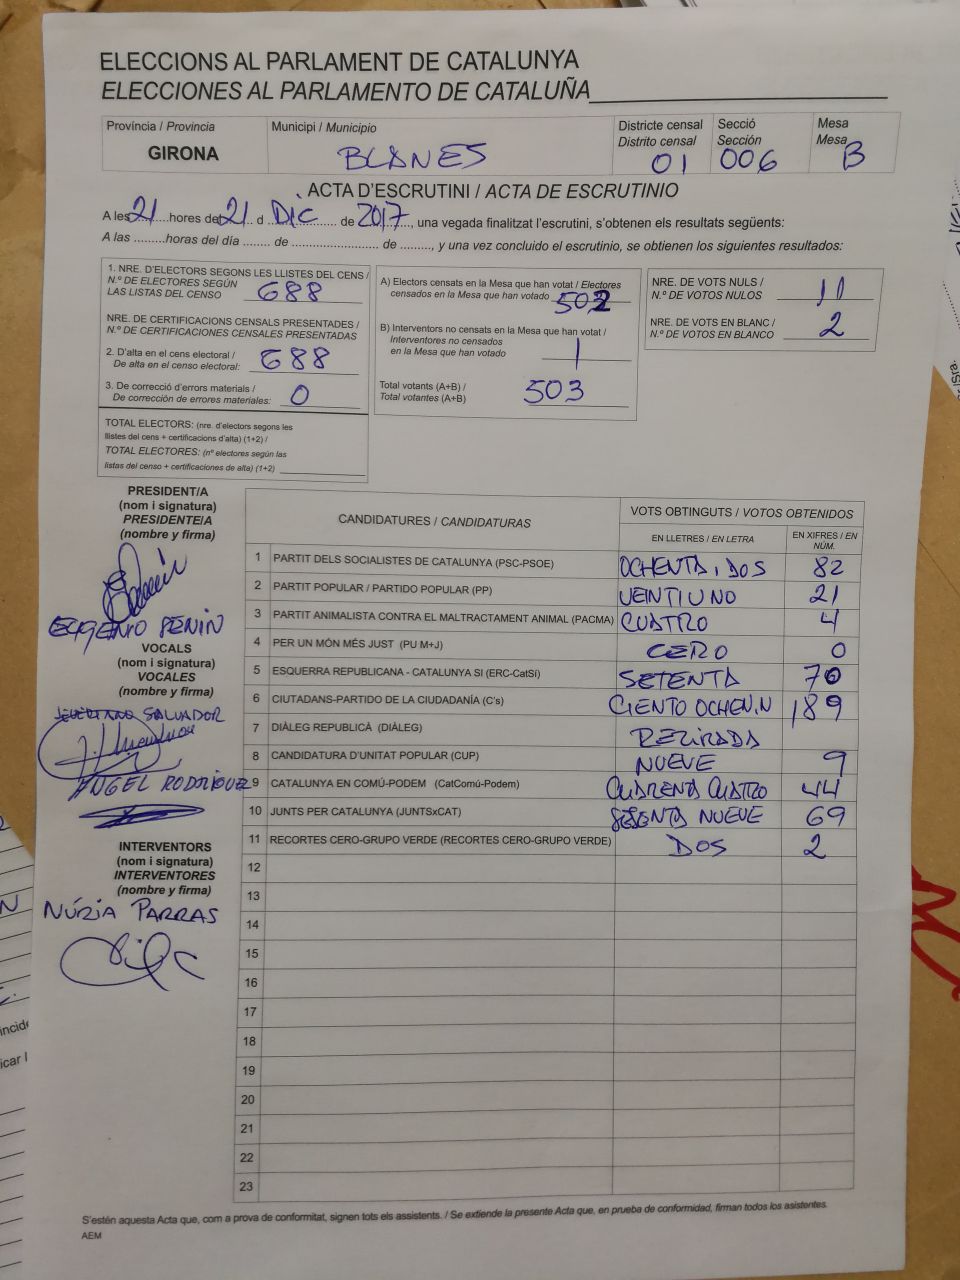 ELECCIONS AL PARLAMENT DE CATALUNYA
ELECCIONES AL PARLAMENTO DE CATALUÑA
Província / Provincia
GIRONA
Municipi / Municipio
BLANES
Districte censal
Distrito censal
01
Secció
Sección
006
Mesa
Mesa
B
ACTA D'ESCRUTINI / ACTA DE ESCRUTINIO
A les 21 hores del 21 d DIC de 2017, una vegada finalitzat l'escrutini, s'obtenen els resultats següents:
A las .........horas del día ........ de .......................... de ........, y una vez concluido el escrutinio, se obtienen los siguientes resultados:
1. NRE. D'ELECTORS SEGONS LES LLISTES DEL CENS /
N.º DE ELECTORES SEGÚN
LAS LISTAS DEL CENSO 688
NRE. DE CERTIFICACIONS CENSALS PRESENTADES /
N.º DE CERTIFICACIONES CENSALES PRESENTADAS
2. D'alta en el cens electoral /
De alta en el censo electoral: 688
3. De correcció d'errors materials /
De corrección de errores materiales: 0
TOTAL ELECTORS: (nre. d'electors segons les
llistes del cens + certificacions d'alta) (1+2) /
TOTAL ELECTORES: (nº electores según las
listas del censo + certificaciones de alta) (1+2)
A) Electors censats en la Mesa que han votat / Electores
censados en la Mesa que han votado 502
B) Interventors no censats en la Mesa que han votat /
Interventores no censados
en la Mesa que han votado 1
Total votants (A+B) /
Total votantes (A+B) 503
NRE. DE VOTS NULS /
N.º DE VOTOS NULOS 11
NRE. DE VOTS EN BLANC /
N.º DE VOTOS EN BLANCO 2
PRESIDENT/A
(nom i signatura)
PRESIDENTE/A
(nombre y firma)
EUGENIO PENIN
VOCALS
(nom i signatura)
VOCALES
(nombre y firma)
SALVADOR
ANGEL RODRÍGUEZ
INTERVENTORS
(nom i signatura)
INTERVENTORES
(nombre y firma)
NÚRIA PARRAS
CANDIDATURES / CANDIDATURAS
VOTS OBTINGUTS / VOTOS OBTENIDOS
EN LLETRES / EN LETRA
EN XIFRES / EN NÚM.
1 PARTIT DELS SOCIALISTES DE CATALUNYA (PSC-PSOE) OCHENTA, DOS 82
2 PARTIT POPULAR / PARTIDO POPULAR (PP) VEINTIUNO 21
3 PARTIT ANIMALISTA CONTRA EL MALTRACTAMENT ANIMAL (PACMA) CUATRO 4
4 PER UN MÓN MÉS JUST (PU M+J) CERO 0
5 ESQUERRA REPUBLICANA - CATALUNYA SI (ERC-CatSí) SETENTA 70
6 CIUTADANS-PARTIDO DE LA CIUDADANÍA (C's) CIENTO OCHEN.N 189
7 DIÀLEG REPUBLICÀ (DIÀLEG) RETIRADA
8 CANDIDATURA D'UNITAT POPULAR (CUP) NUEVE 9
9 CATALUNYA EN COMÚ-PODEM (CatComú-Podem) CUARENTA CUATRO 44
10 JUNTS PER CATALUNYA (JUNTSxCAT) SESENTA NUEVE 69
11 RECORTES CERO-GRUPO VERDE (RECORTES CERO-GRUPO VERDE) DOS 2
12
13
14
15
16
17
18
19
20
21
22
23
S'estén aquesta Acta que, com a prova de conformitat, signen tots els assistents. / Se extiende la presente Acta que, en prueba de conformidad, firman todos los asistentes.
AEM